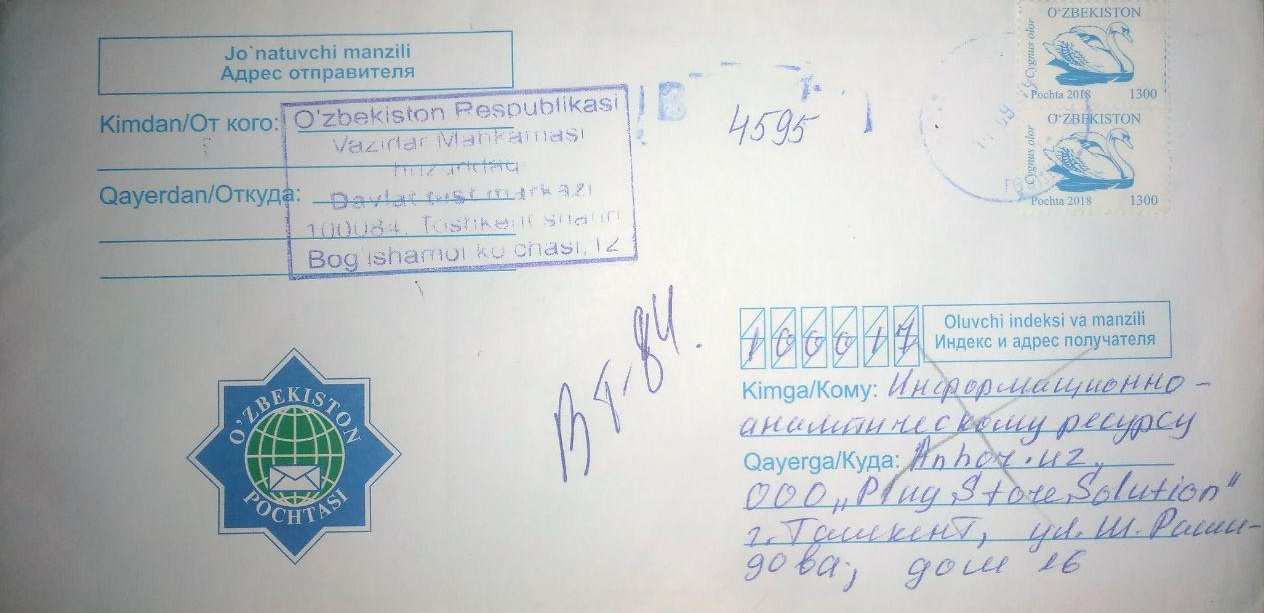 Jo`natuvchi manzili
Адрес отправителя
Kimdan/От кого:
Qayerdan/Откуда:
O'zbekiston Respublikasi
Vazirlar Mahkamasi
huzuridagi
Davlat test markazi
100084, Toshkent shahri
Bog'ishamol ko'chasi, 12
4595
O'ZBEKISTON
Cygnus olor
Pochta 2018 1300
O'ZBEKISTON
Cygnus olor
Pochta 2018 1300
O'ZBEKISTON
POCHTASI
100017
Oluvchi indeksi va manzili
Индекс и адрес получателя
Kimga/Кому: Информационно-
аналитическому ресурсу
Qayerga/Куда: Anhor.uz,
ООО „Plug Store Solution"
г. Ташкент, ул. Ш. Раши-
дова, дом 16